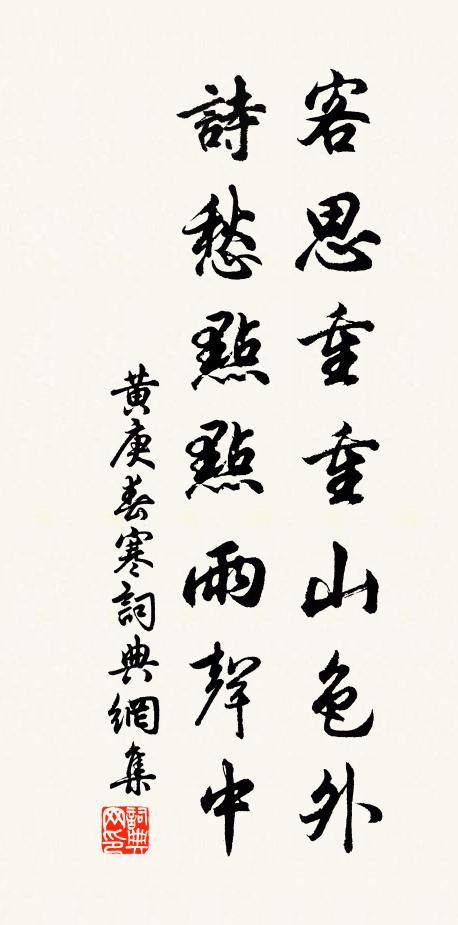 客思重重山色外
詩愁點點雨聲中
黄庚春寒詞典網集
詞典网印